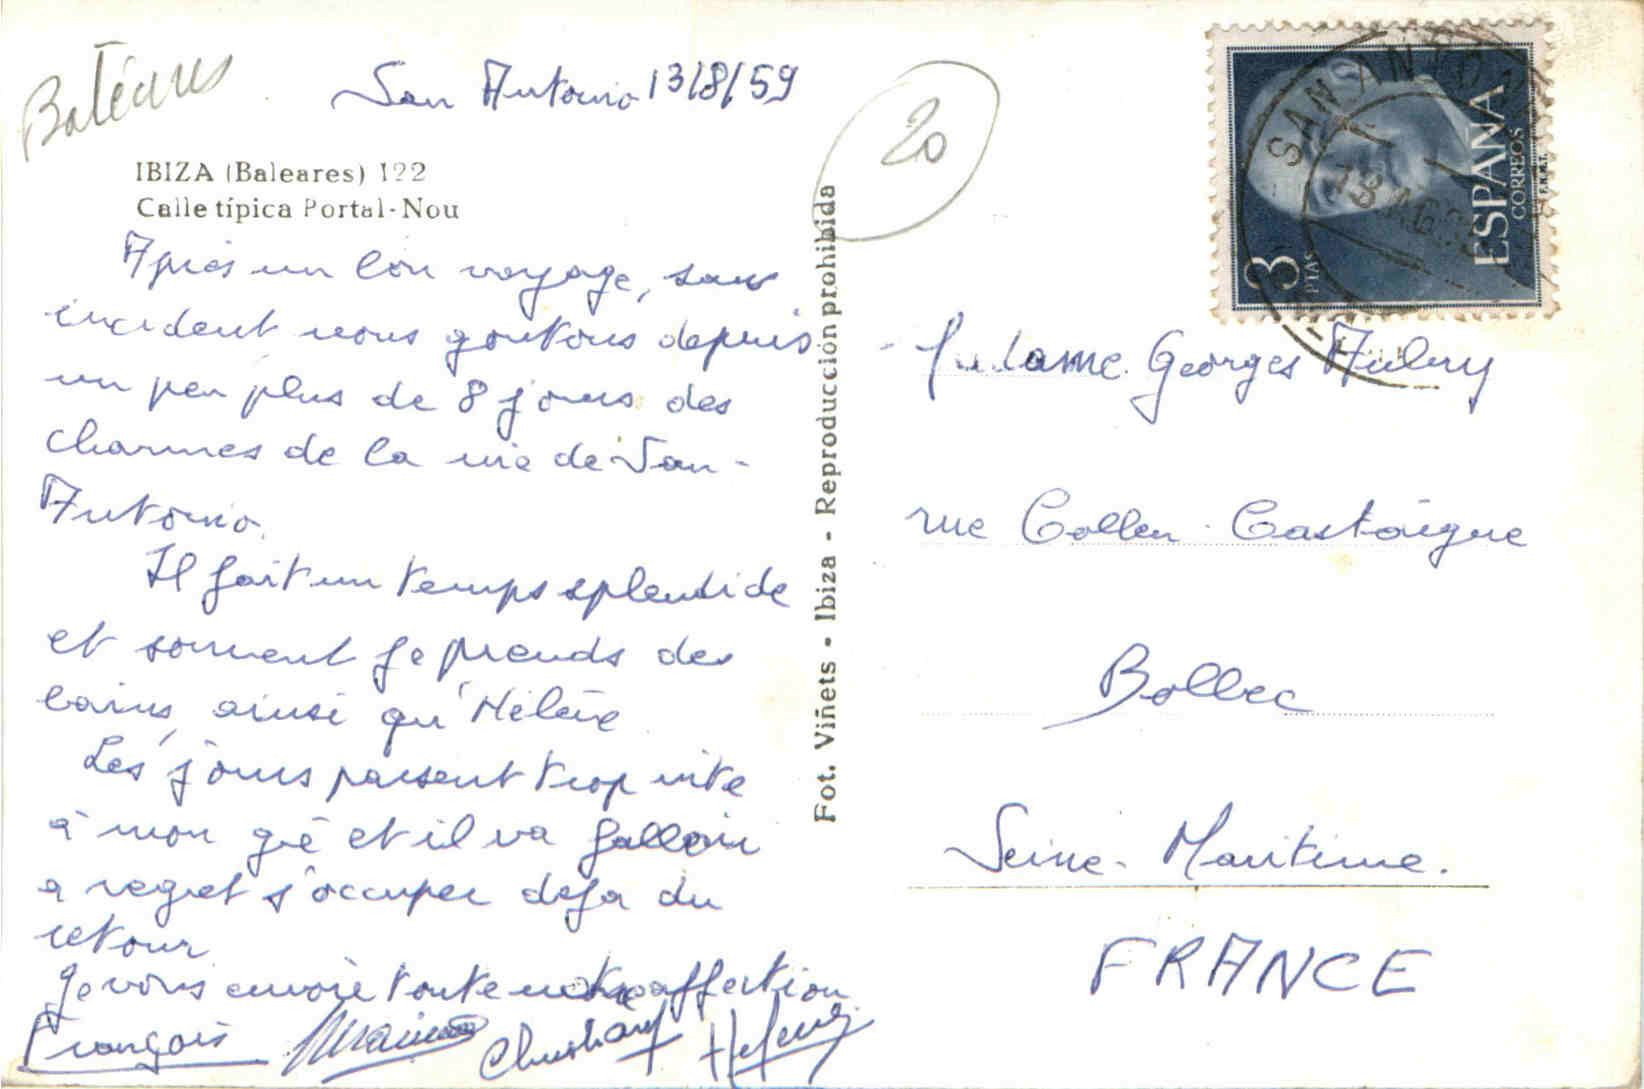 Baléares
San Antonio 13/8/59
IBIZA (Baleares) 122
Calle típica Portal-Nou
Après un bon voyage, sans
incident nous goutons depuis
un peu plus de 8 jours des
charmes de la vie de San-
Antonio.
Il fait un temps splendide
et souvent je prends des
bains, ainsi qu'Hélène
Les jours passent trop vite
à mon gré et il va falloir
a regret s'occuper deja du
retour
Je vous envoie toute notre affection
François Christian Helene
Fot. Viñets - Ibiza - Reproducción prohibida
20
3 PTAS
ESPAÑA
CORREOS
F.N.M.T.
SAN ANTONIO
13 AGO
Madame Georges Aubry
rue Collen Castaigne
Bolbec
Seine-Maritime.
FRANCE